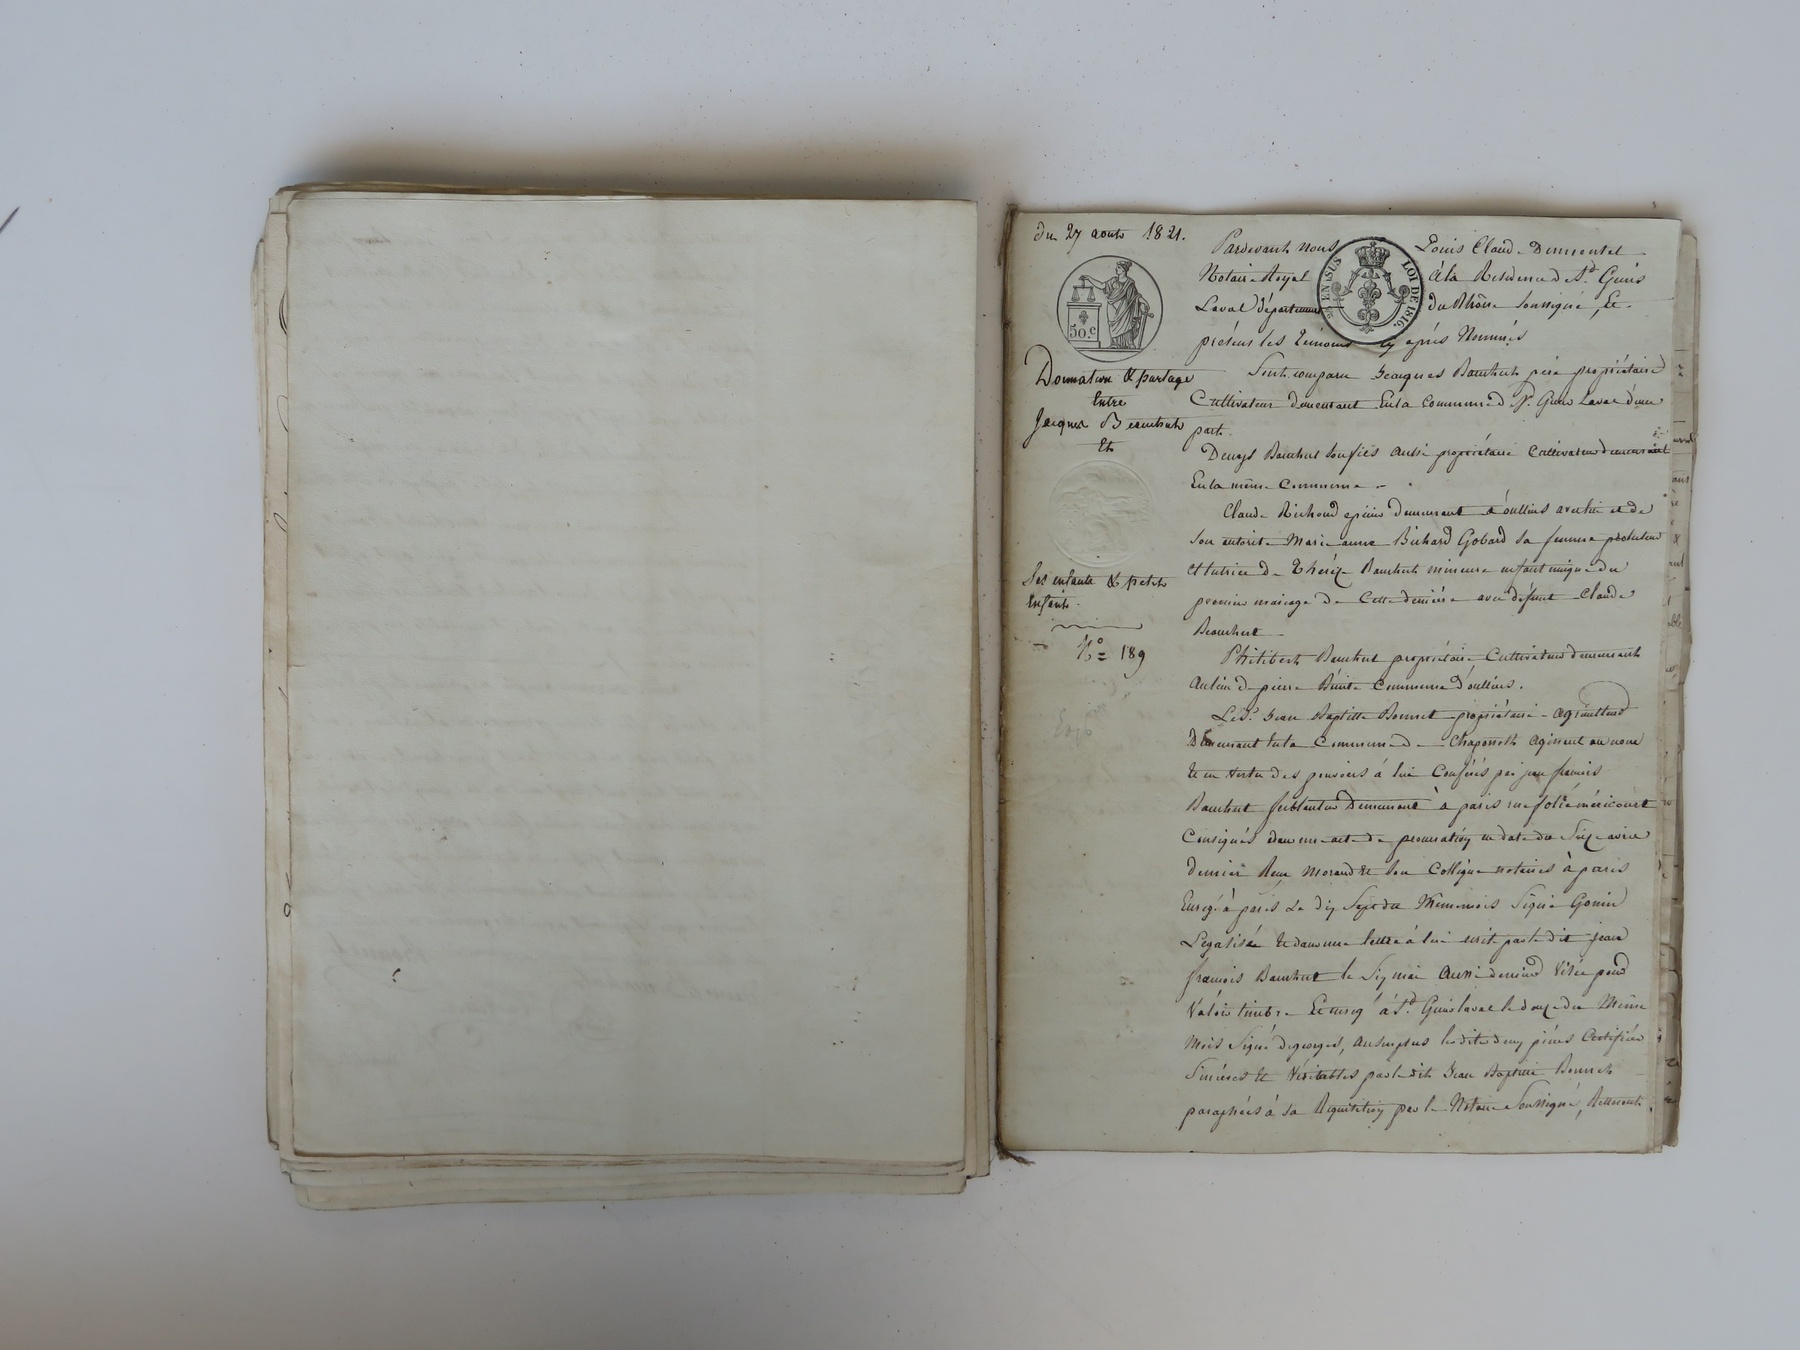 du 27 aout 1821.
50.c
EN SUS LOI DE 1816.
Donnation & partage
Entre
Jacques Beauchut
Et
Ses enfants & petits
Enfants.
N.o = 189
Pardevant nous Louis Claude Demontel
Notaire Royal à la Residence de St. Genis
Laval département du Rhône soussigné, Et
présens les témoins cy après Nommés
Sont comparu Jacques Bauchut père propriétaire
Cultivateur demeurant En la Commune de St. Genis Laval d'une
part.
Denys Bauchut son fils aussi propriétaire Cultivateur demeurant
En la même Commune
Claude Richoud épicier demeurant à oullins avec lui et de
Son autorité Marie anne Richard Gobard sa femme
et tutrice de Thérèze Bauchut mineure enfant unique du
premier mariage de Cette dernière avec défunt Claude
Beauchut
Philibert Bauchut propriétaire Cultivateur demeurant
au lieu de pierre Bénite Commune d'oullins.
Le Sr. Jean Baptiste Bonnet propriétaire agriculteur
Demeurant En la Commune de Chaponost agissant au nom
Et en vertu des pouvoirs à lui Conférés par jean françois
Bauchut ferblantier Demeurant à paris rue folie méricourt
Consignés dans un acte de procuration en date du Seize avril
dernier Reçu Morand & son Collègue notaires à paris
Enregé. à paris Le dix Sept du Même mois Signé Gonin
Legalisée Et dans une lettre à lui écrite par le dit jean
françois Bauchut le Six mai aussi dernier Visée pour
Valoir timbre Et enregé. à St. Genis laval le douze du Même
Mois Signé degeorges, les dites deux pièces Certifiées
Sincères Et Véritables par le dit Jean Baptiste Bonnet
paraphées à sa Réquisition par le Notaire Soussigné,